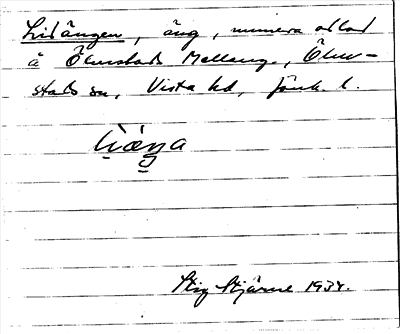 Lidängen, äng, numera odlad
å Ölmstads Mellang., Ölm-
stads sn, Vista hd, Jönk. l.
Stig Stjärne 1934.